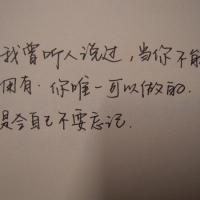 我曾听人说过，当你不能
拥有．你唯一可以做的．
是令自己不要忘记．